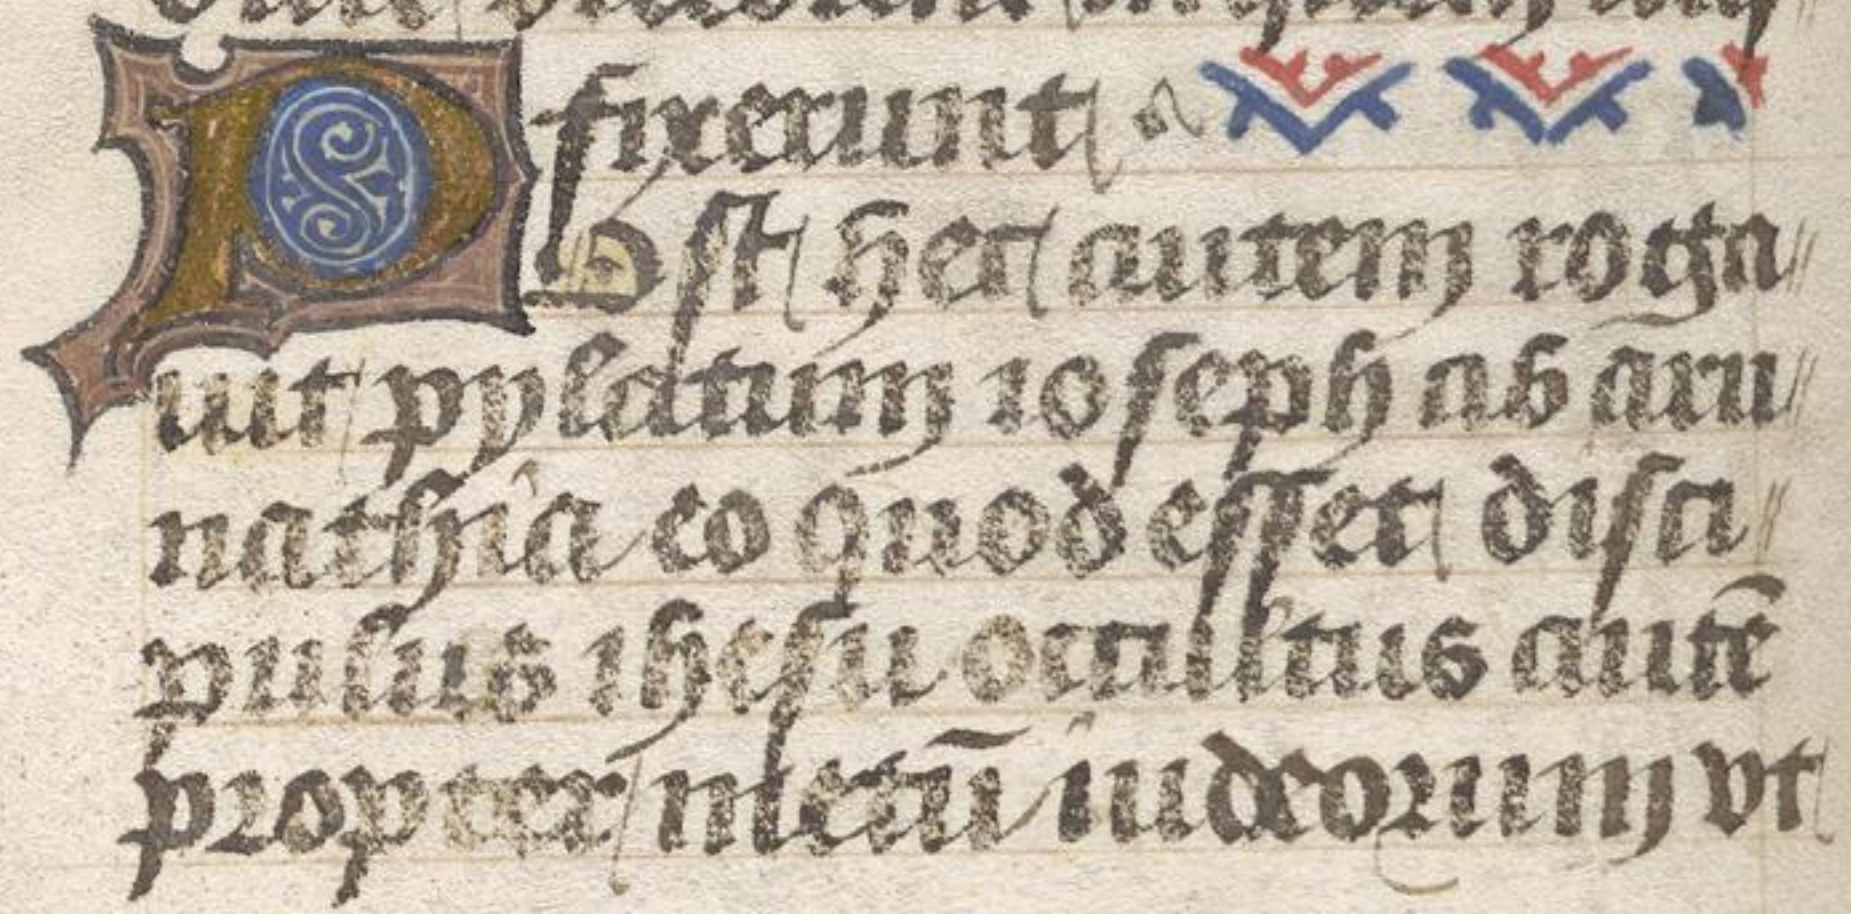 fixerunt
Post hec autem roga
uit pylatum ioseph ab aru
nathia eo quod esset disci
pulus ihesu occultus autē
propter metū iudeorum vt